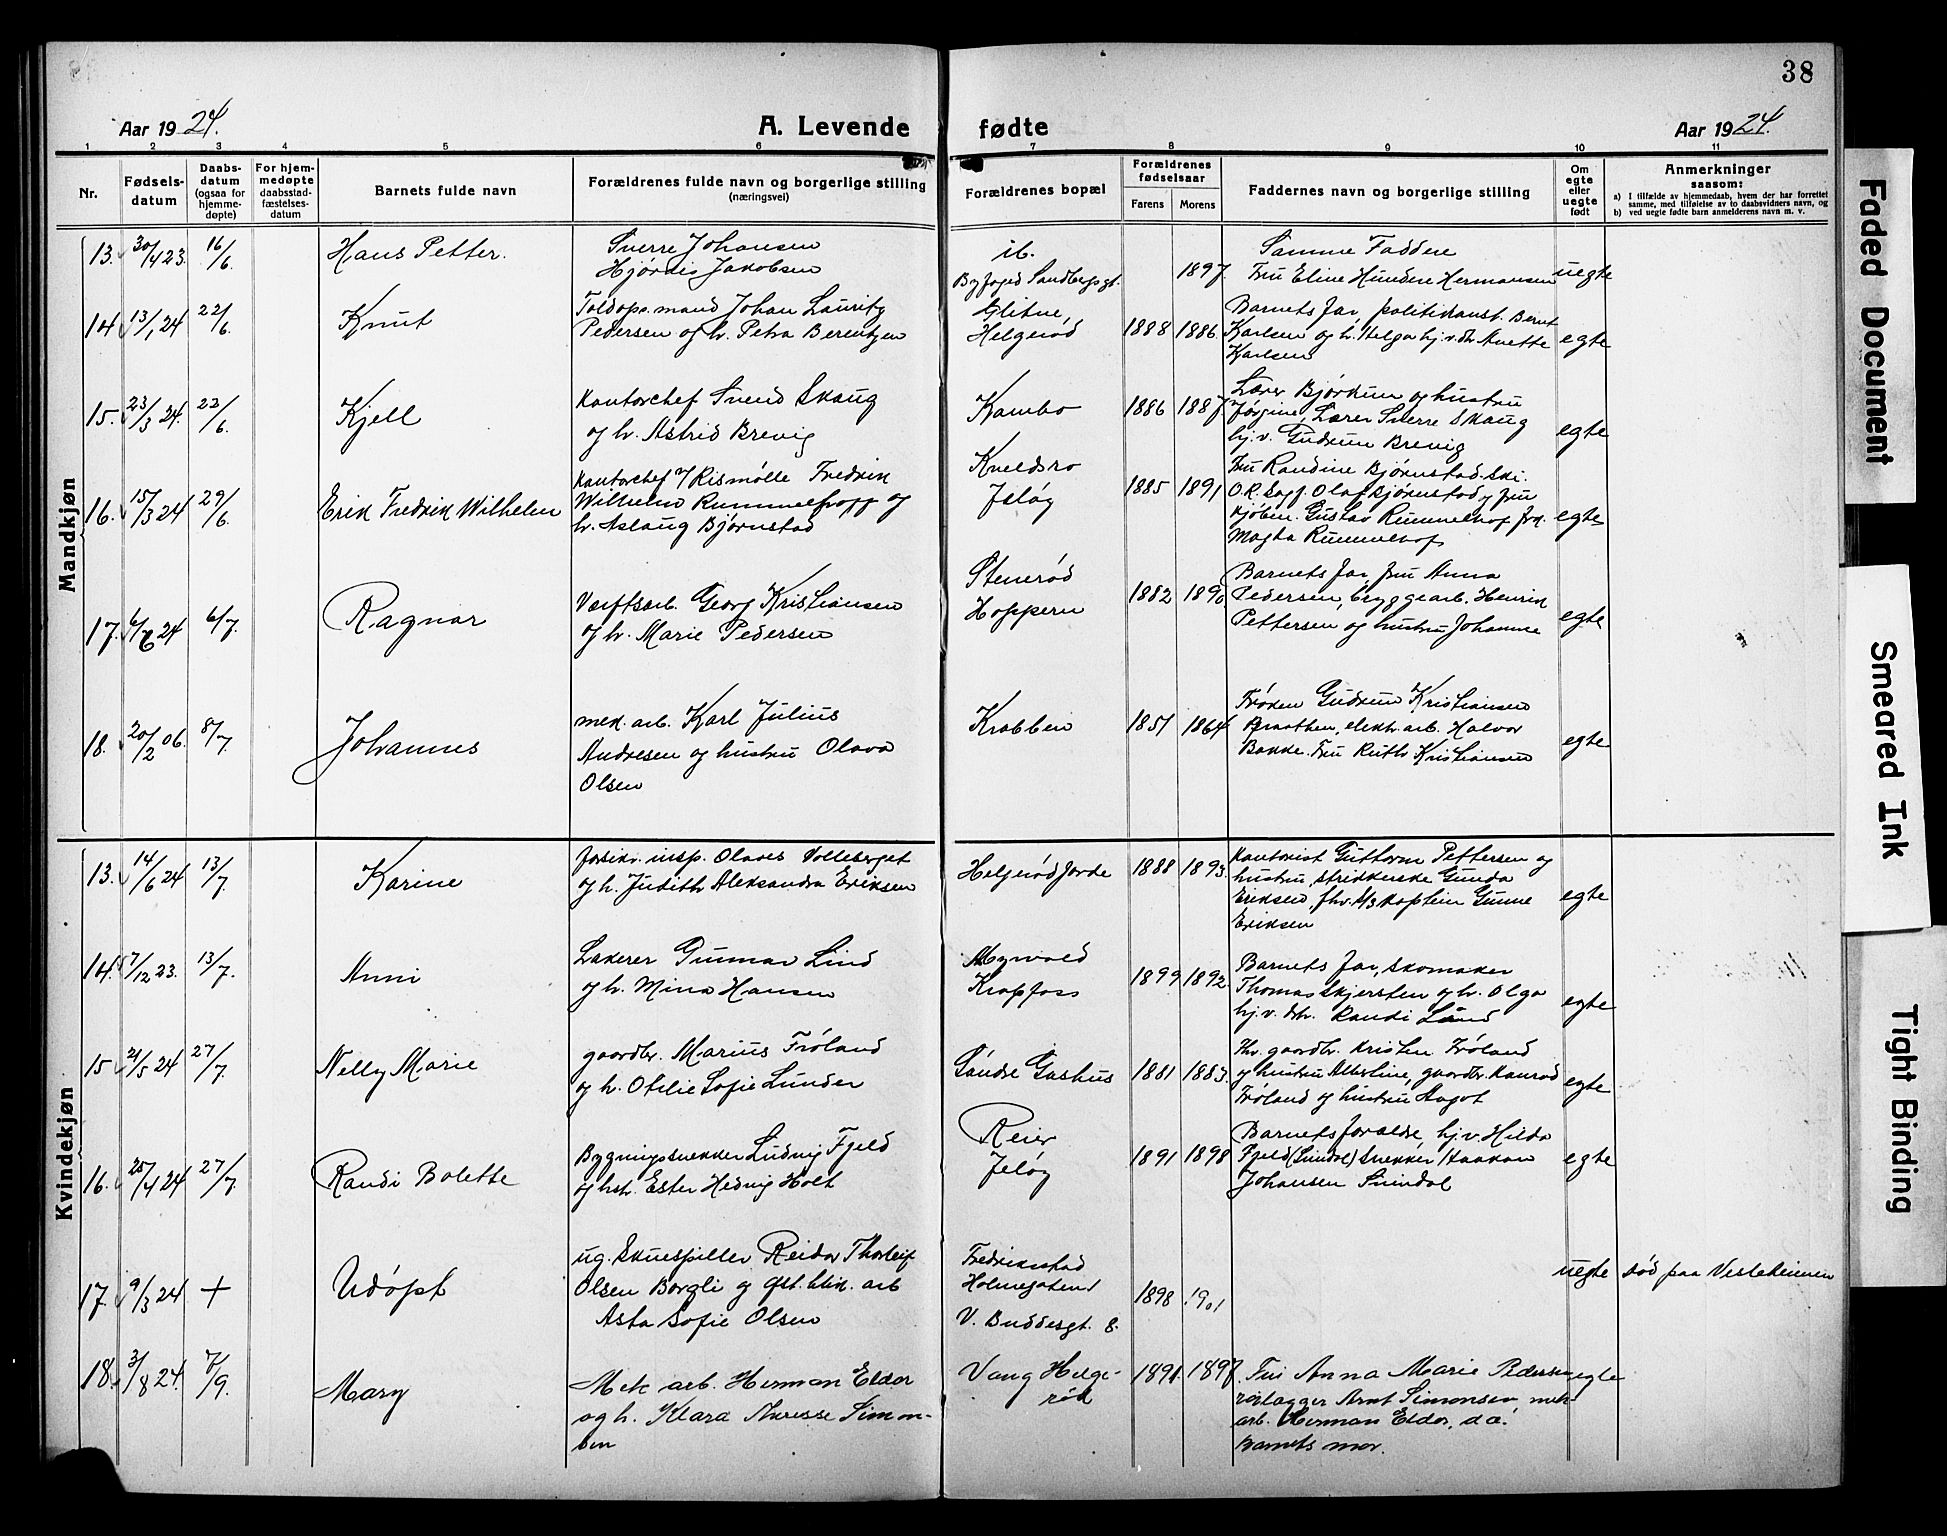 38
Aar 1924.
A. Levende fødte
Aar 1924.
1 2 3 4 5 6 7 8 9 10 11
Nr.
Fødsels-
datum
Daabs-
datum
(ogsaa for
hjemme-
døpte)
For hjem-
medøpte
daabsstad-
fæstelses-
datum
Barnets fulde navn
Forældrenes fulde navn og borgerlige stilling
(næringsvei)
Forældrenes bopæl
Forældrenes
fødselsaar
Farens Morens
Faddernes navn og borgerlige stilling
Om
egte
eller
uegte
født
Anmerkninger
saasom:
a) I tilfælde av hjemmedaab, hvem der har forrettet
samme, med tilføielse av to daabsvidners navn, og
b) ved uegte fødte barn anmelderens navn m. v.
Mandkjøn
13. 30/4 23. 16/6. Hans Petter.
Sverre Johansen
Hjørdis Jakobsen
ib.
Byfoged Sandbergsgt.
1897.
Samme Faddere
Fru Eline Hundere Hermansen
uegte
14. 13/1 24 22/6. Knut
Toldops.mand Johan Lauritz
Pedersen og h. Petra Berentzen
Glitne,
Helgerød
1888 1886.
Barnets far, politikonst. Bernt
Karlsen og h. Helga hj.v.dtr. Anette
Karlsen
egte
15. 23/3 24. 22/6. Kjell
Kontorchef Svend Skaug
og h. Astrid Brevig
Kambo
1886 1887.
Lærer Bjørkum og hustru
Jørgine, Lærer Sverre Skaug
hj.v. Gudrun Brevig
egte
16. 15/3 24 29/6. Erik Fredrik Wilhelm
Kontorchef v/ Rismølle Fredrik
Wilhelm Rummelhoff og
h. Aslaug Bjørnstad
Kveldsro
Jeløy
1885 1891
Fru Randine Bjørnstad. Ski.
O.R.Sagf. Olaf Bjørnstad og fru
kjøbm. Gustav Rummelhof frk.
Magta Rummelhof
egte
17. 6/6 24 6/7. Ragnar
Værftsarb. Georg Kristiansen
og h. Marie Pedersen
Stenerød
Hoppern
1882 1890.
Barnets far, fru Anna
Pedersen, bryggearb. Henrik
Pettersen og hustru Johanne
egte
18. 20/2 06. 8/7. Johannes
mek. arb. Karl Julius
Andresen og hustru Olava
Olsen
Krabben
1851 1864
Frøken Gudrun Kristiansen
Braathen, elektr. arb. Halvor
Bakke. Fru Ruth Kristiansen
egte
Kvindekjøn
13. 14/6 24 13/7. Karine
forsikr. insp. Olaves Volleberget
og h. Judith Aleksandra Eriksen
Helgerød Jorde
1888 1893.
Kontorist Guttorm Pettersen og
hustru, strikkerske Gunda
Eriksen, fhv. kaptein Gunne
Eriksen
egte
14. 7/12 23. 13/7. Anni
Lakerer Gunnar Lind
og h. Mina Hansen
Myrvold
Krapfoss
1899 1892.
Barnets far, skomaker
Thomas Skjersten og h. Olga
hj.v. dtr. Randi Lund
egte
15 21/5 24 27/7. Nelly Marie
gaardbr. Marius Frøland
og h. Otilie Sofie Lunder
Søndre Gashus
1881 1883.
Fhv. gaardbr. Kristen Frøland
og hustru Albertine, gaardbr. Konrad
Frøland og hustru Aagot
egte
16. 25/4 24 27/7. Randi Bolette
Bygningssnekker Ludvig Fjeld
og hstr. Ester Hedvig Holt
Reier
Jeløy
1891 1898
Barnets forældre, hj.v. Hilda
Fjeld (Sundal) Snekker Haakon
Johansen Sundal
egte
17. 9/3 24 + Udøpt
ug. Skuespiller Reidar Thorleif
Olsen Borgli og gft. blik. arb
Asta Sofie Olsen
Fredriksstad
Holmegaten 1
V. Buddesgt. 8.
1898 1901
uegte
død paa Vesteheimen
18. 3/8 24. 7/9. Mary
Mek arb. Herman Elder
og h. Klara Therese Simon-
sen
Vang Helge-
rød
1891. 1897.
Fru Anna Marie Pedersen
rørlægger Arnt Simonsen, mek
arb. Herman Elder, då.
Barnets mor.
egte
Faded Document
Smeared Ink
Tight Binding